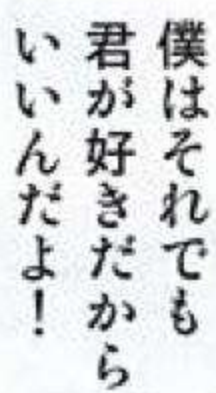 僕はそれでも
君が好きだから
いいんだよ！